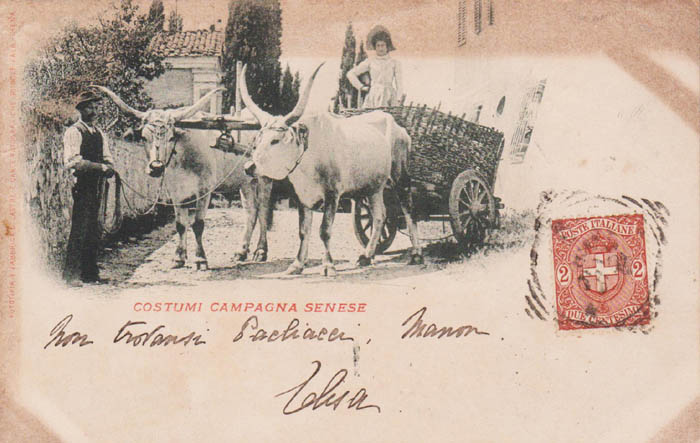 COSTUMI CAMPAGNA SENESE
POSTE ITALIANE
2 2
DUE CENTESIMI
Non trovansi Pagliacci, Manon.
Elisa